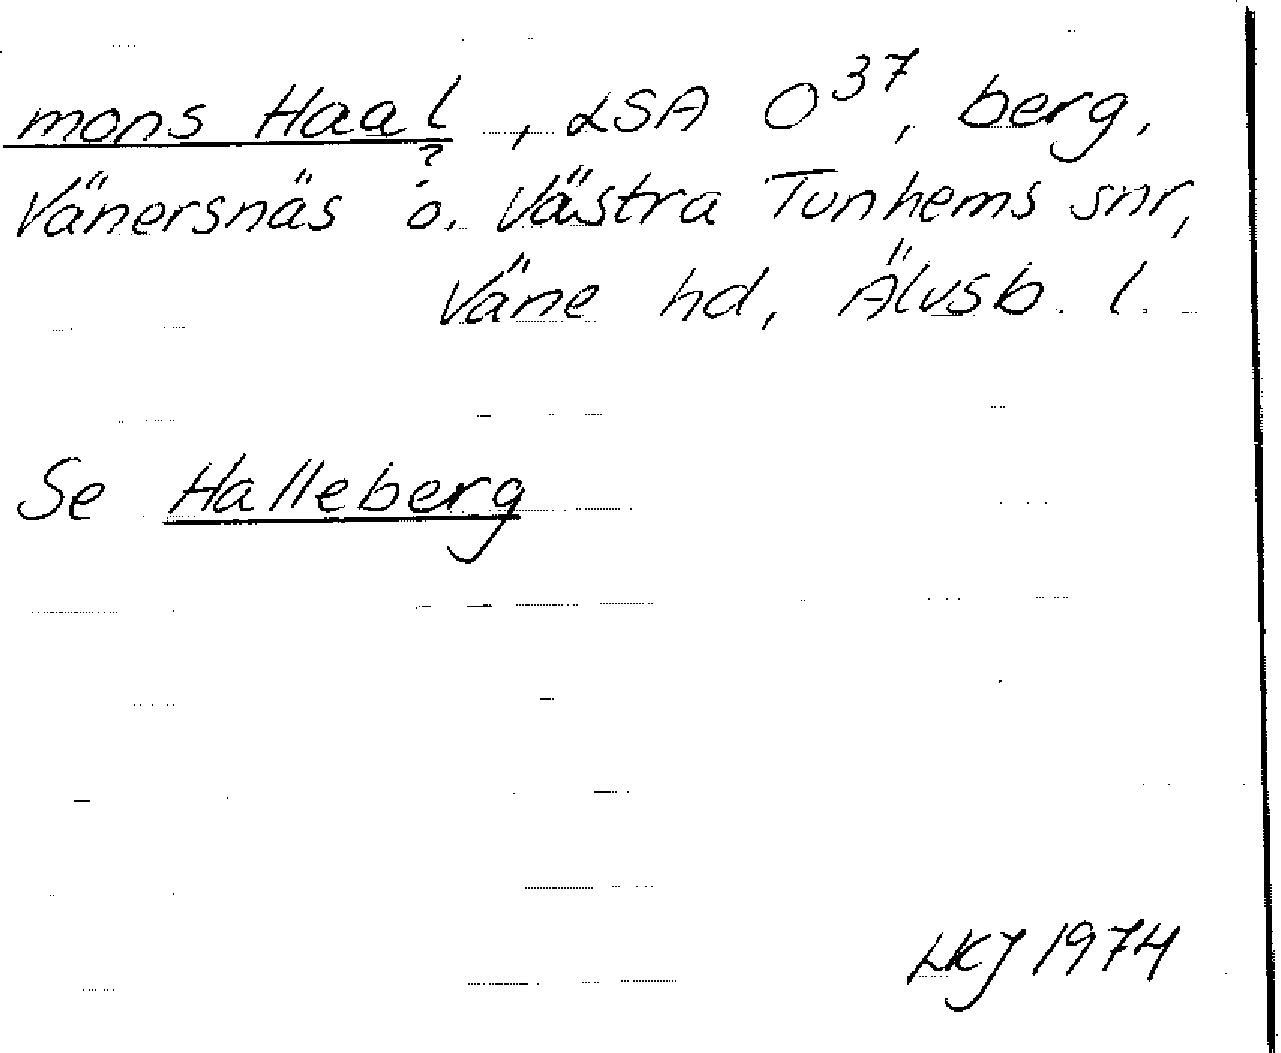 mons Haal, LSA O37, berg,
Vänersnäs ?o. Västra Tunhems snr,
Väne hd, Älvsb. l.
Se Halleberg
LKJ 1974